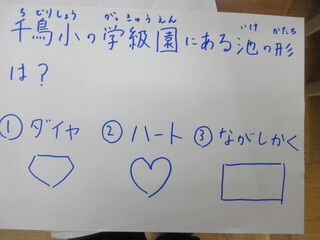 千鳥小の学級園にある池の形
は？
①ダイヤ ②ハート ③ながしかく
ちどりしょう がっきゅうえん いけ かたち